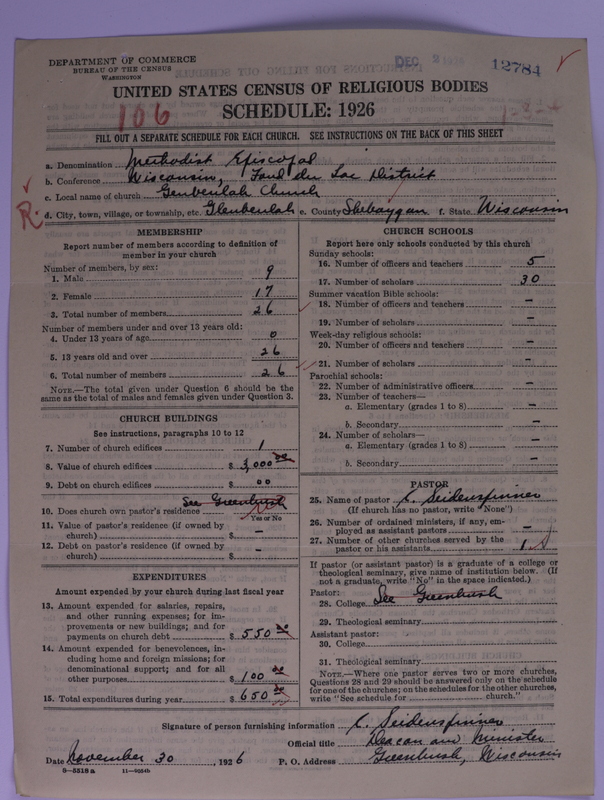 DEPARTMENT OF COMMERCE
BUREAU OF THE CENSUS
WASHINGTON
DEC 2 1926
12784
UNITED STATES CENSUS OF RELIGIOUS BODIES
106
SCHEDULE: 1926
FILL OUT A SEPARATE SCHEDULE FOR EACH CHURCH. SEE INSTRUCTIONS ON THE BACK OF THIS SHEET
a. Denomination Methodist Episcopal
b. Conference Wisconsin, Fond du Lac District
c. Local name of church Genbeulah Church
R. d. City, town, village, or township, etc. Glenbeulah e. County Sheboygan f. State Wisconsin
MEMBERSHIP
Report number of members according to definition of member in your church
Number of members, by sex:
1. Male 9
2. Female 17
3. Total number of members 26
Number of members under and over 13 years old:
4. Under 13 years of age 0
5. 13 years old and over 26
6. Total number of members 26
NOTE.—The total given under Question 6 should be the
same as the total of males and females given under Question 3.
CHURCH BUILDINGS
See instructions, paragraphs 10 to 12
7. Number of church edifices 1
8. Value of church edifices $ 3,000 00
9. Debt on church edifices $ 00
See Greenbush
10. Does church own pastor's residence
Yes or No
11. Value of pastor's residence (if owned by
church) $ –
12. Debt on pastor's residence (if owned by
church) $ –
EXPENDITURES
Amount expended by your church during last fiscal year
13. Amount expended for salaries, repairs,
and other running expenses; for im-
provements or new buildings; and for
payments on church debt $ 550 00
14. Amount expended for benevolences, in-
cluding home and foreign missions; for
denominational support; and for all
other purposes $ 100 00
15. Total expenditures during year $ 650 00
CHURCH SCHOOLS
Report here only schools conducted by this church
Sunday schools:
16. Number of officers and teachers 5
17. Number of scholars 30
Summer vacation Bible schools:
18. Number of officers and teachers –
19. Number of scholars –
Week-day religious schools:
20. Number of officers and teachers –
21. Number of scholars –
Parochial schools:
22. Number of administrative officers –
23. Number of teachers—
a. Elementary (grades 1 to 8) –
b. Secondary –
24. Number of scholars—
a. Elementary (grades 1 to 8) –
b. Secondary –
PASTOR
25. Name of pastor C. Seidenspinner
(If church has no pastor, write "None")
26. Number of ordained ministers, if any, em-
ployed as assistant pastors –
27. Number of other churches served by the
pastor or his assistants 1
If pastor (or assistant pastor) is a graduate of a college or
theological seminary, give name of institution below. (If
not a graduate, write "No" in the space indicated.)
Pastor:
28. College See Greenbush
29. Theological seminary
Assistant pastor:
30. College
31. Theological seminary
NOTE.—Where one pastor serves two or more churches,
Questions 28 and 29 should be answered only on the schedule
for one of the churches; on the schedules for the other churches,
write "See schedule for church."
Signature of person furnishing information C. Seidenspinner
Official title Deacon and Minister
Date November 30, 1926 P. O. Address Greenbush, Wisconsin
8—5518 a 11—9054b